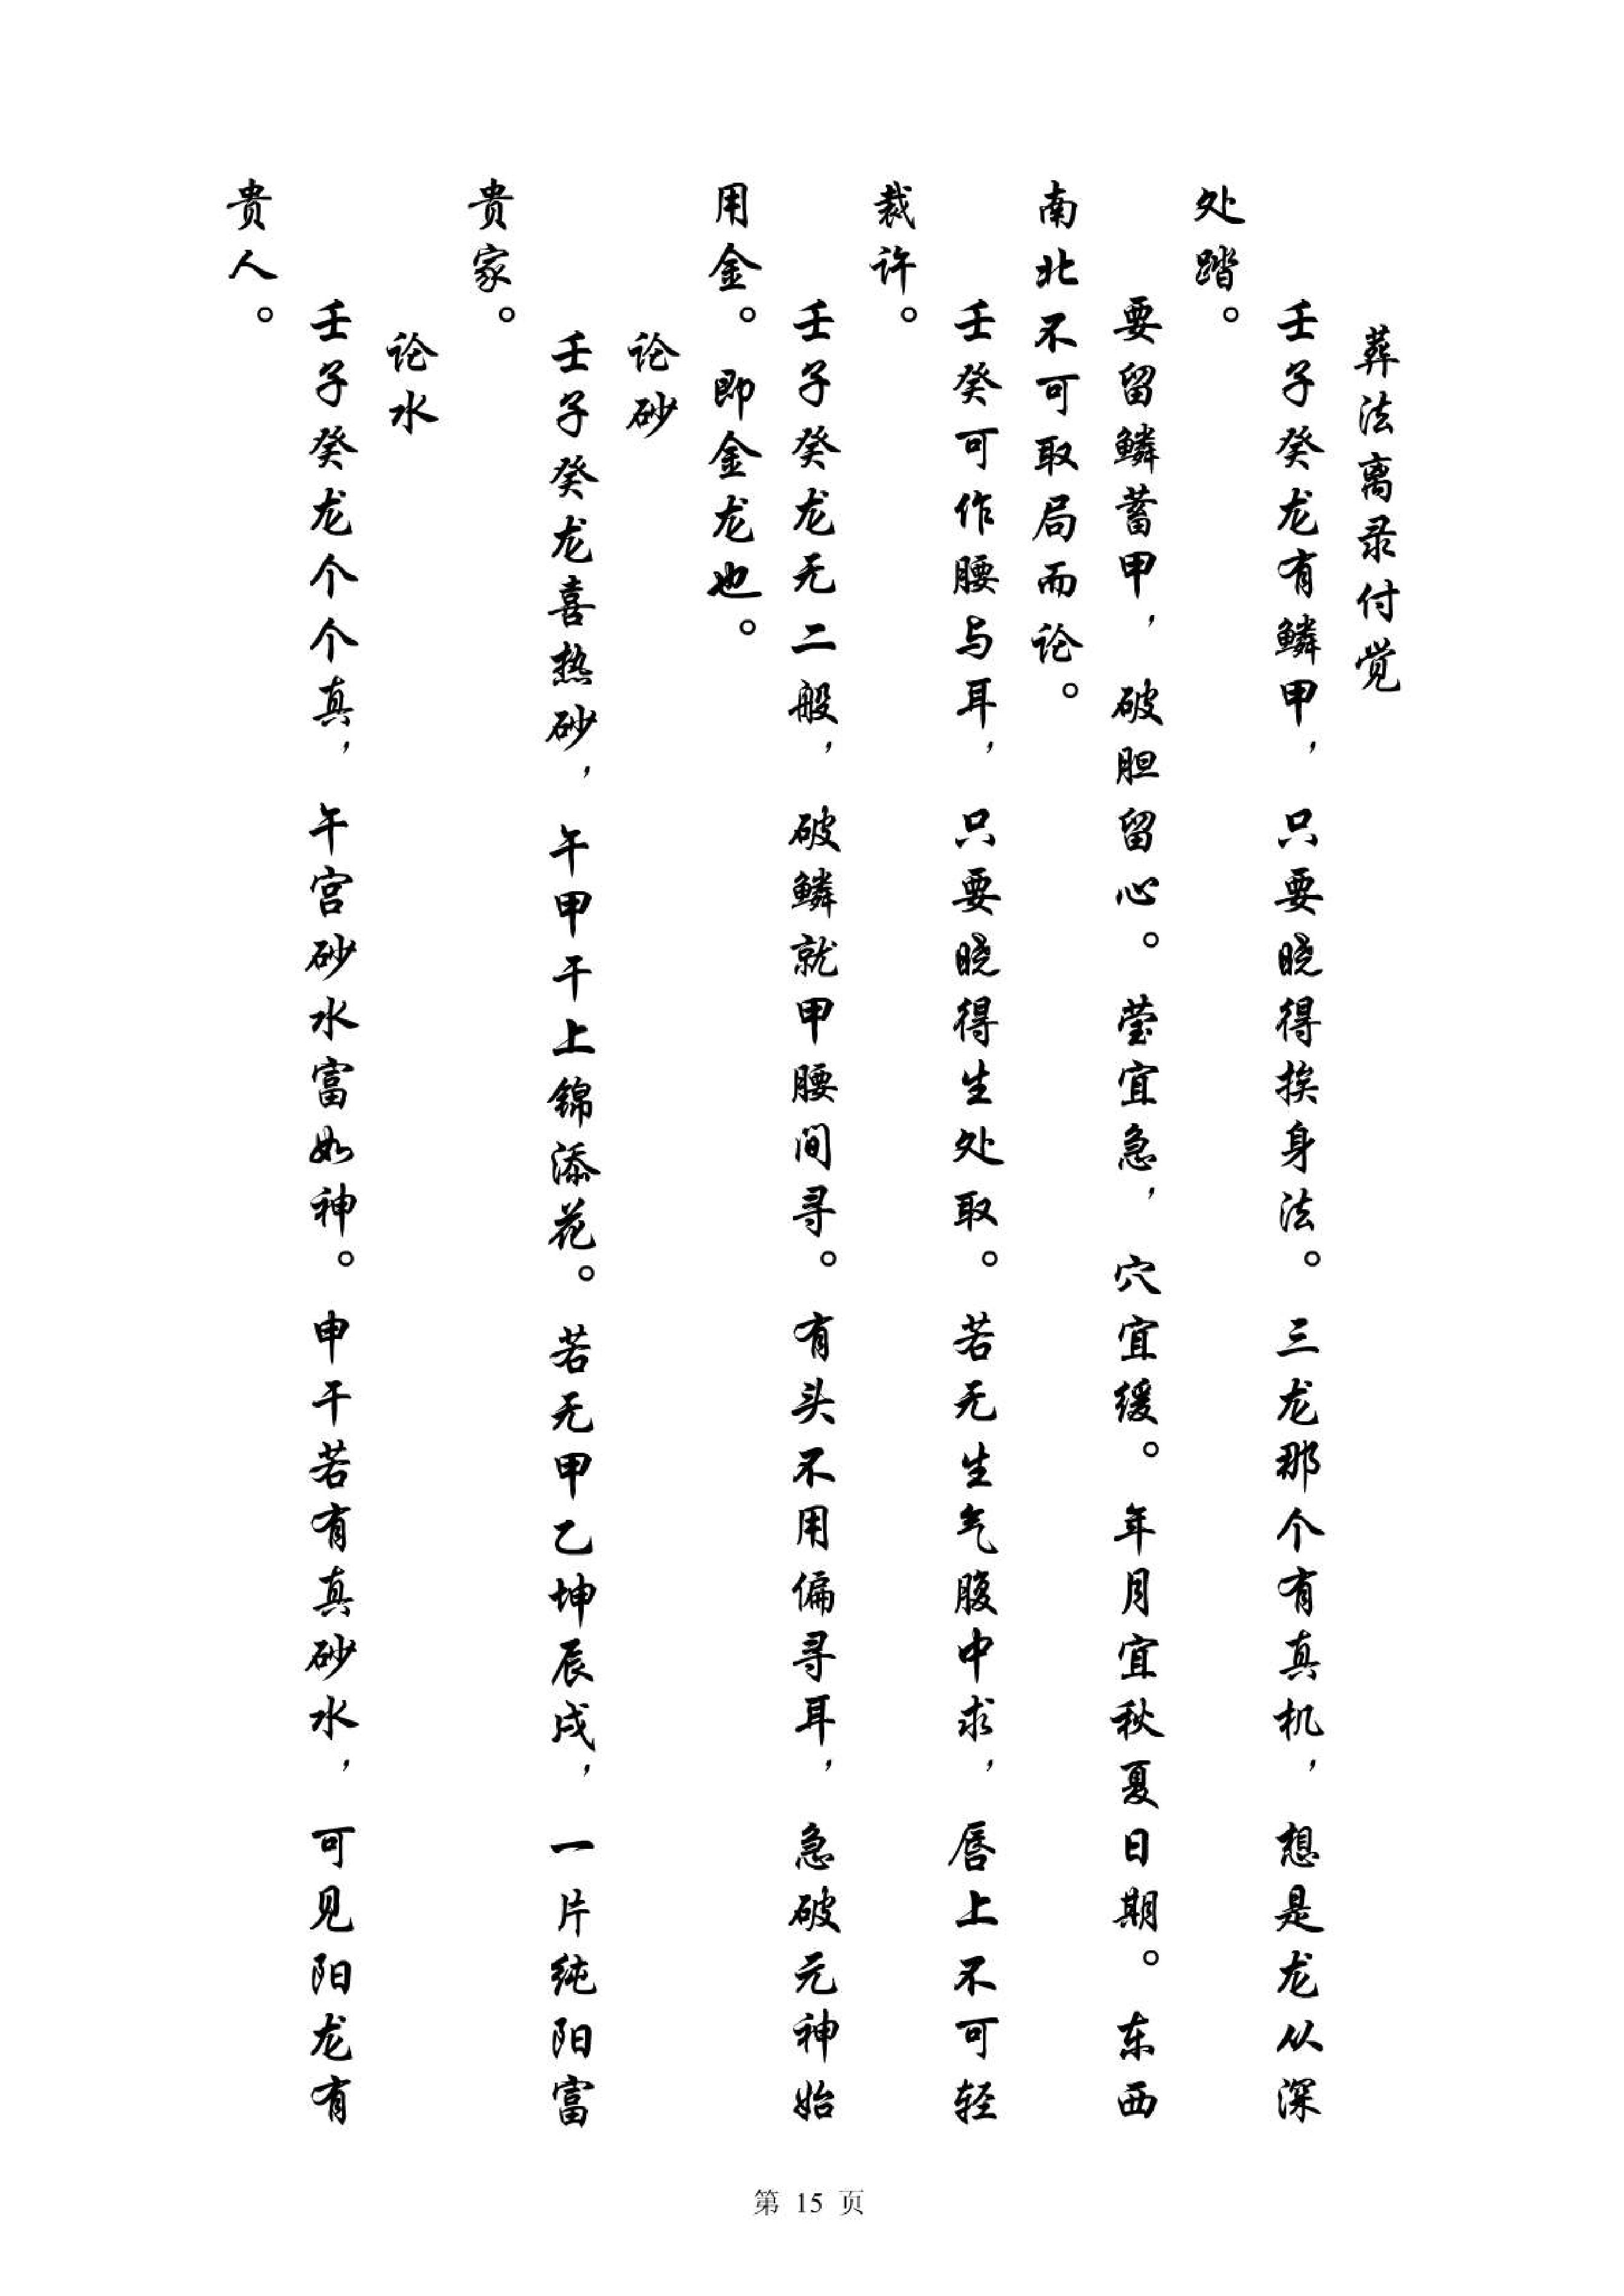 葬法离录付觉
壬子癸龙有鳞甲，只要晓得挨身法。三龙那个有真机，想是龙从深
处踏。
要留鳞蓄甲，破胆留心。莹宜急，穴宜缓。年月宜秋夏日期。东西
南北不可取局而论。
壬癸可作腰与耳，只要晓得生处取。若无生气腹中求，唇上不可轻
裁许。
壬子癸龙无二般，破鳞就甲腰间寻。有头不用偏寻耳，急破元神始
用金。即金龙也。
论砂
壬子癸龙喜热砂，午甲干上锦添花。若无甲乙坤辰戌，一片纯阳富
贵家。
论水
壬子癸龙个个真，午宫砂水富如神。申干若有真砂水，可见阳龙有
贵人。
第 15 页